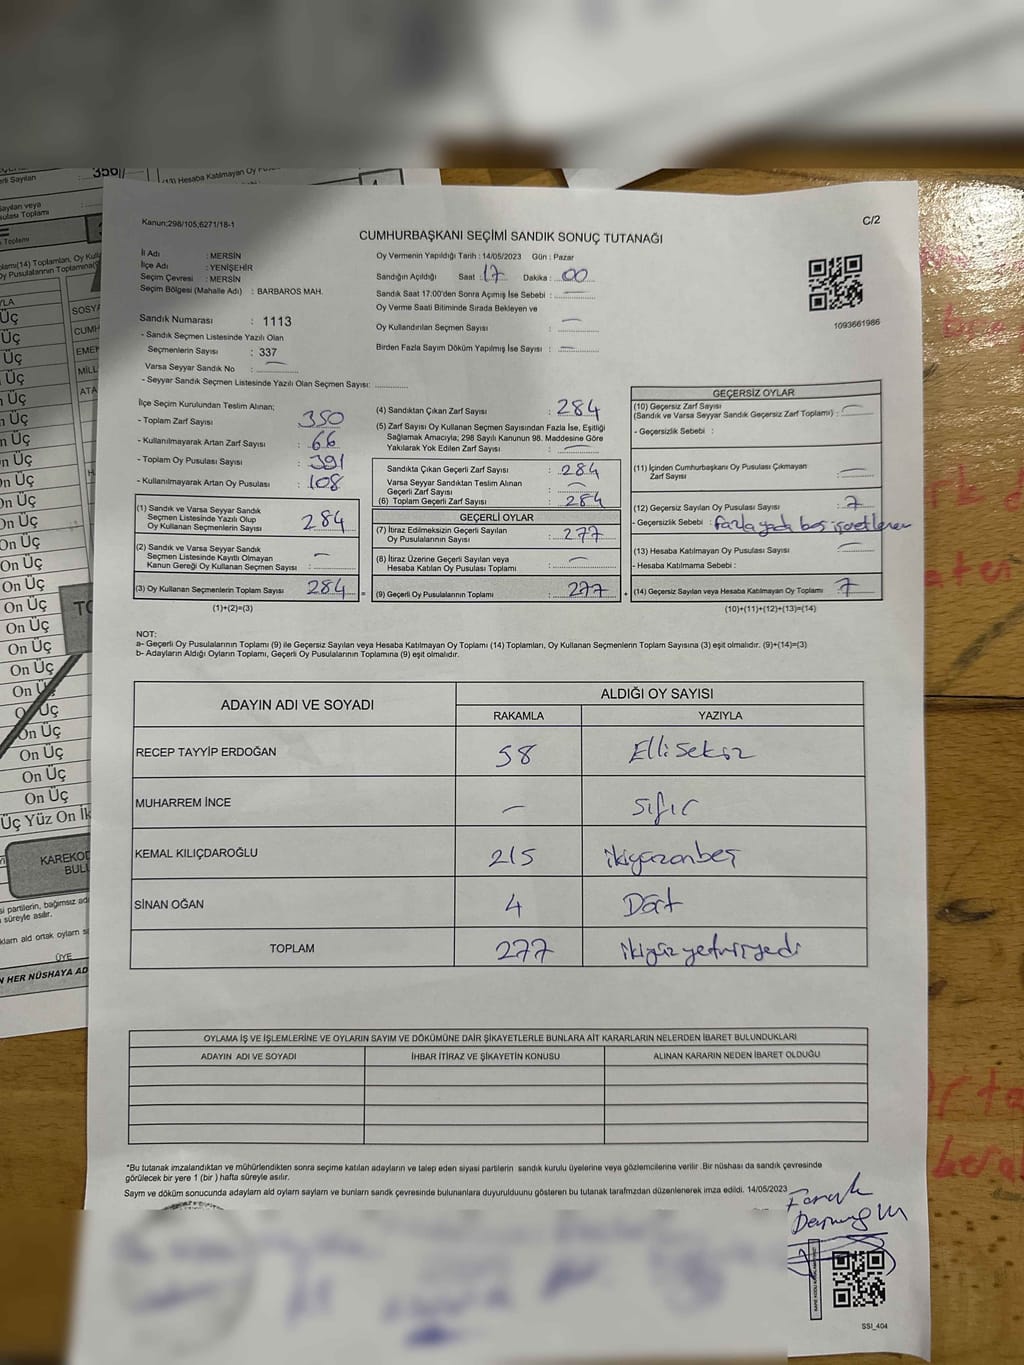 Kanun;298/105;6271/18-1
C/2
CUMHURBAŞKANI SEÇİMİ SANDIK SONUÇ TUTANAĞI
İl Adı : MERSİN
İlçe Adı : YENİŞEHİR
Seçim Çevresi : MERSİN
Seçim Bölgesi (Mahalle Adı) : BARBAROS MAH.
Oy Vermenin Yapıldığı Tarih : 14/05/2023 Gün : Pazar
Sandığın Açıldığı Saat : 17 Dakika : 00
Sandık Saat 17:00'den Sonra Açımış İse Sebebi : —
Oy Verme Saati Bitiminde Sırada Bekleyen ve
Oy Kullandırılan Seçmen Sayısı : —
Birden Fazla Sayım Döküm Yapılmış İse Sayısı : —
1093661986
Sandık Numarası : 1113
- Sandık Seçmen Listesinde Yazılı Olan
Seçmenlerin Sayısı : 337
Varsa Seyyar Sandık No : —
- Seyyar Sandık Seçmen Listesinde Yazılı Olan Seçmen Sayısı: ..............
İlçe Seçim Kurulundan Teslim Alınan;
- Toplam Zarf Sayısı : 350
- Kullanılmayarak Artan Zarf Sayısı : 66
- Toplam Oy Pusulası Sayısı : 391
- Kullanılmayarak Artan Oy Pusulası : 108
(1) Sandık ve Varsa Seyyar Sandık
Seçmen Listesinde Yazılı Olup
Oy Kullanan Seçmenlerin Sayısı : 284
(2) Sandık ve Varsa Seyyar Sandık
Seçmen Listesinde Kayıtlı Olmayan
Kanun Gereği Oy Kullanan Seçmen Sayısı : —
(3) Oy Kullanan Seçmenlerin Toplam Sayısı : 284 =
(1)+(2)=(3)
(4) Sandıktan Çıkan Zarf Sayısı : 284
(5) Zarf Sayısı Oy Kullanan Seçmen Sayısından Fazla İse, Eşitliği
Sağlamak Amacıyla; 298 Sayılı Kanunun 98. Maddesine Göre
Yakılarak Yok Edilen Zarf Sayısı : —
Sandıkta Çıkan Geçerli Zarf Sayısı : 284
Varsa Seyyar Sandıktan Teslim Alınan
Geçerli Zarf Sayısı : —
(6) Toplam Geçerli Zarf Sayısı : 284
GEÇERLİ OYLAR
(7) İtiraz Edilmeksizin Geçerli Sayılan
Oy Pusulalarının Sayısı : 277
(8) İtiraz Üzerine Geçerli Sayılan veya
Hesaba Katılan Oy Pusulası Toplamı : —
(9) Geçerli Oy Pusulalarının Toplamı : 277 +
GEÇERSİZ OYLAR
(10) Geçersiz Zarf Sayısı
(Sandık ve Varsa Seyyar Sandık Geçersiz Zarf Toplamı) : —
- Geçersizlik Sebebi :
(11) İçinden Cumhurbaşkanı Oy Pusulası Çıkmayan
Zarf Sayısı : —
(12) Geçersiz Sayılan Oy Pusulası Sayısı : 7
- Geçersizlik Sebebi : fazla yada boş işaretlenen
(13) Hesaba Katılmayan Oy Pusulası Sayısı : —
- Hesaba Katılmama Sebebi :
(14) Geçersiz Sayılan veya Hesaba Katılmayan Oy Toplamı : 7
(10)+(11)+(12)+(13)=(14)
NOT:
a- Geçerli Oy Pusulalarının Toplamı (9) ile Geçersiz Sayılan veya Hesaba Katılmayan Oy Toplamı (14) Toplamları, Oy Kullanan Seçmenlerin Toplam Sayısına (3) eşit olmalıdır. (9)+(14)=(3)
b- Adayların Aldığı Oyların Toplamı, Geçerli Oy Pusulalarının Toplamına (9) eşit olmalıdır.
ADAYIN ADI VE SOYADI ALDIĞI OY SAYISI
RAKAMLA YAZIYLA
RECEP TAYYİP ERDOĞAN 58 Elli sekiz
MUHARREM İNCE — sıfır
KEMAL KILIÇDAROĞLU 215 ikiyüzonbeş
SİNAN OĞAN 4 Dört
TOPLAM 277 ikiyüzyetmişyedi
OYLAMA İŞ VE İŞLEMLERİNE VE OYLARIN SAYIM VE DÖKÜMÜNE DAİR ŞİKAYETLERLE BUNLARA AİT KARARLARIN NELERDEN İBARET BULUNDUKLARI
ADAYIN ADI VE SOYADI İHBAR İTİRAZ VE ŞİKAYETİN KONUSU ALINAN KARARIN NEDEN İBARET OLDUĞU
*Bu tutanak imzalandıktan ve mühürlendikten sonra seçime katılan adayların ve talep eden siyasi partilerin sandık kurulu üyelerine veya gözlemcilerine verilir .Bir nüshası da sandık çevresinde
görülecek bir yere 1 (bir ) hafta süreyle asılır.
Sayım ve döküm sonucunda adayların ald oyların sayların ve bunların sandk çevresinde bulunanlara duyurulduunu gösteren bu tutanak tarafmzdan düzenlenerek imza edildi. 14/05/2023
SSİ_404